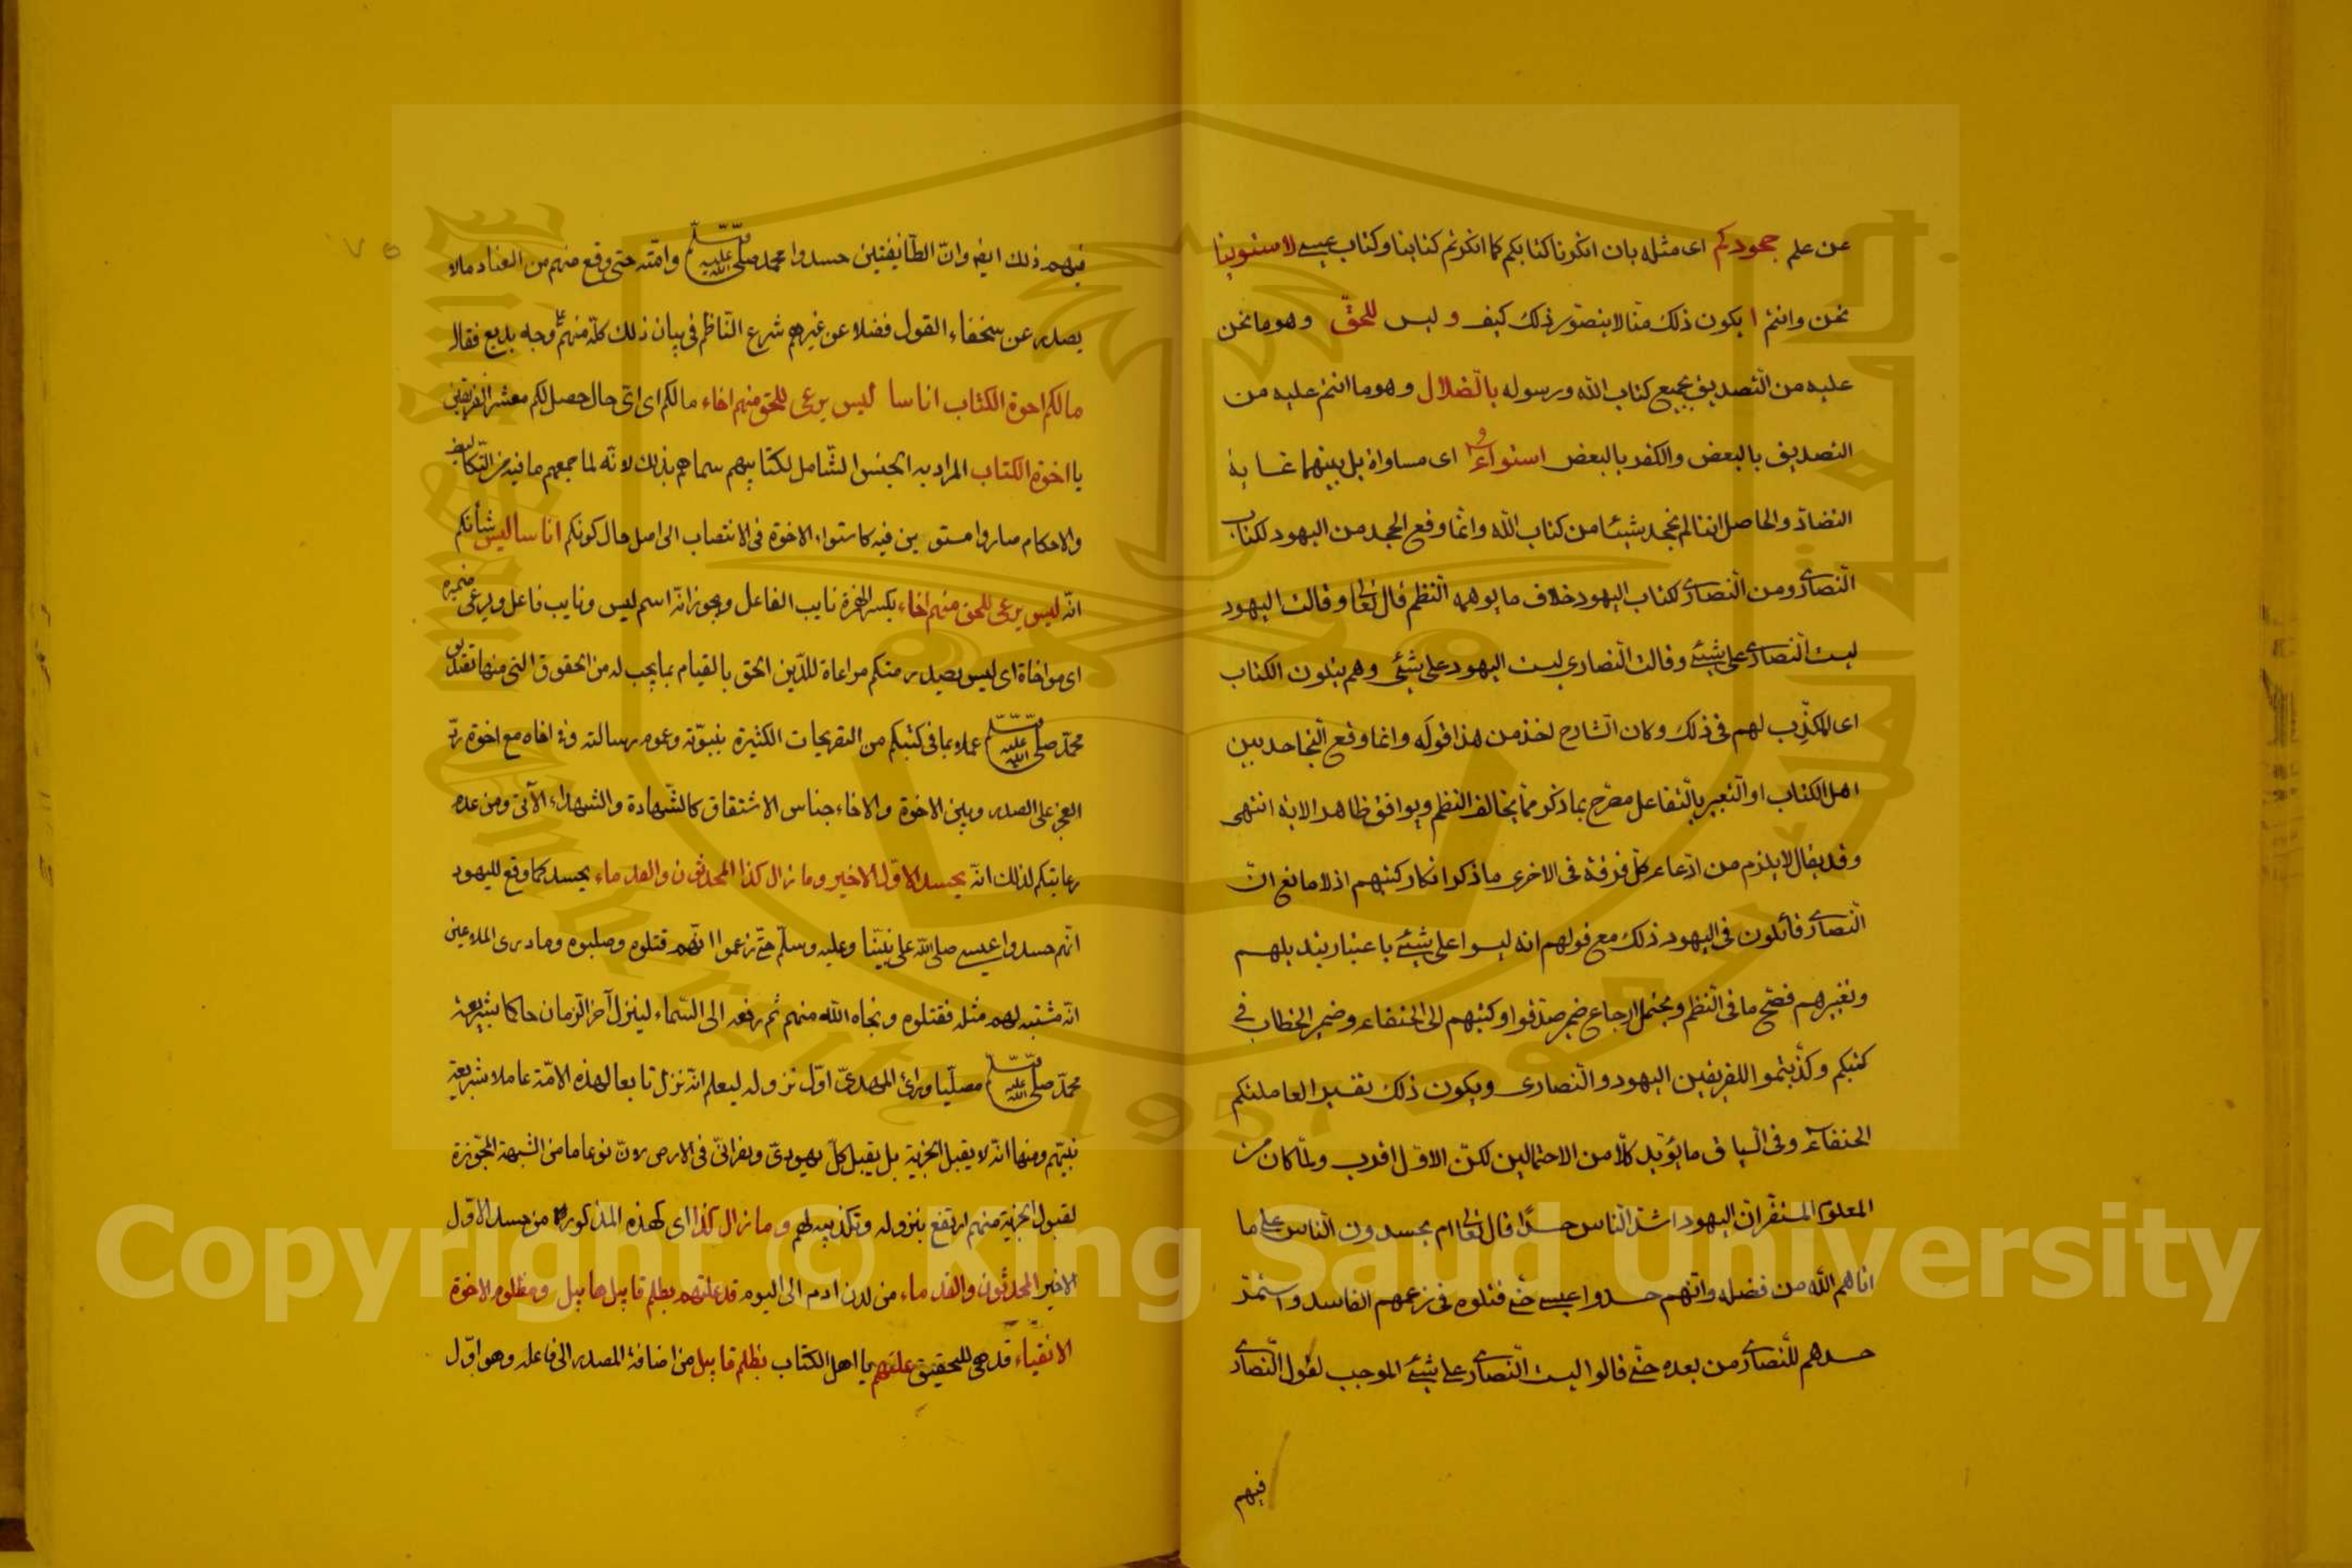 عن علم جحودكم اى مثله بان انكرنا كتابكم كما انكرتم كتابنا وكتاب عيسى لاستوينا
نحن وانتم ا يكون ذلك منا لا يتصور ذلك كيف و ليس للحقّ وهو ما نحن
عليه من التصديق بجميع كتاب الله ورسوله بالضلال وهو ما انتم عليه من
التصديق بالبعض والكفر بالبعض استواء اى مساواة بل بينهما غاية
التضادّ والحاصل اننا لم نجحد شيئا من كتاب الله وانما وقع الجحد من اليهود لكتاب
النصارى ومن النصارى لكتاب اليهود خلاف ما يوهمه النظم قال تعالى وقالت اليهود
ليست النصارى على شيئ وقالت النصارى ليست اليهود على شيئ وهم يتلون الكتاب
اى المكذِّب لهم فى ذلك وكان الشارح اخذ من هذا قوله وانما وقع التجاحد بين
اهل الكتاب او التعبير بالتفاعل مصرّح بما ذكر مما يخالف النظم ويوافق ظاهر الاية انتهى
وقد يقال لا يلزم من ادّعاء كلّ فرقة فى الاخرى ما ذكر انكار كتبهم اذ لا مانع انّ
النصارى قائلون فى اليهود ذلك مع قولهم انه ليسوا على شيئ باعتبار تبديلهم
وتغييرهم فصّح ما فى النظم ويحتمل ارجاع ضمير صدّقوا وكتبهم الى الحنفاء وضمير الخطاب فى
كتبكم وكذّبتموا للفريقين اليهود والنصارى ويكون ذلك تفسيرا لعاملتكم
الحنفاء وفى السياق ما يؤيّد كلّا من الاحتمالين لكنّ الاوّل اقرب ولمّا كان من
المعلوم المتقرّ انّ اليهود اشدّ الناس حسدًا قال تعالى ام يحسدون الناس على ما
اتاهم الله من فضله وانّهم حسدوا عيسى حتّى قتلوه فى زعمهم الفاسد واستمرّ
حسدهم للنصارى من بعده حتّى قالوا ليست النصارى على شيئ الموجب لقول النصارى
فيهم
فيهم ذلك ايضا وانّ الطّائفتين حسدوا محمد صلى الله عليه وسلم وامّته حتى وقع منهم من العناد ما لا
يصدر عن سخفاء القول فضلا عن غيرهم شرع الناظم فى بيان ذلك كلّه منهم على وجه بديع فقال
مالكم اخوة الكتاب اناسا ليس يرعى للحق منهم اخاء مالكم اى اىّ حال حصل لكم معشر الفريقين
يا اخوة الكتاب المراد به الجنس الشّامل لكتابيهم سماهم بذلك لانّه لما جمعهم ما فيه من التكاليف
والاحكام صاروا مستوين فيه كاستواء الاخوة فى الانتصاب الى اصل حال كونكم اناسا ليس شأنكم
انّه ليس يرعى للحق منهم اخاء بكسر الهمزة نايب الفاعل ويجوز انّه اسم ليس ونايب فاعل ويرعى ضميره
اى مواخاة اى ليس يصدر منكم مراعاة للدّين الحق بالقيام بما يجب له من الحقوق التى منها تصديق
محمّد صلى الله عليه وسلم عملا بما فى كتبكم من التصريحات الكثيرة بنبوّته وعموم رسالته وفى اخاه مع اخوة ردّ
العجز على الصدر وبين الاخوة والاخاء جناس الاشتقاق كالشّهادة والشهداء الآتى ومن عدم
رعايتكم لذلك انّه يحسد الاوّل الاخير وما زال كذا المحدثون والقدماء يحسد كما وقع لليهود
انّهم حسدوا عيسى صلى الله على نبيّنا وعليه وسلّم حتّى زعموا انّهم قتلوه وصلبوه وما درى الملاعين
انّه مشتبه لهم مثله فقتلوه ونجاه الله منهم ثم رفعه الى السّماء لينزل آخر الزمان حاكما بشريعة
محمّد صلى الله عليه وسلم مصلّيا وراء المهدىّ اوّل نزوله ليعلم انّه نزل تابعا لهذه الامّة عاملا بشريعة
نبيّهم ومنها انّه لا يقبل الجزية بل يقبل كلّ يهودىّ ونصرانىّ فى الارض لانّ نوعا ما من الشبهة المجوّزة
لقبول الجزية منهم ارتفع بنزوله وتكذيبه لهم وما زال كذا اى كهذه المذكورة من حسد الاوّل
الاخير المحدثون والقدماء من لدن ادم الى اليوم قد علمتم بظلم قابيل هابيل ومظلوم الاخوة
الاتقياء قد هى للتحقيق علمتم يا اهل الكتاب بظلم قابيل من اضافة المصدر الى فاعله وهو اوّل
Copyright © King Saud University
1957